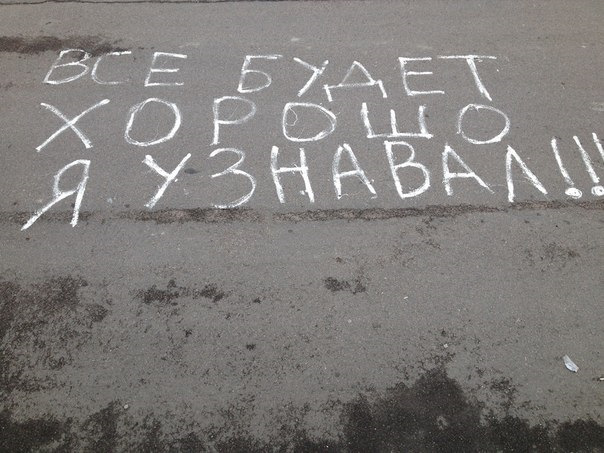 ВСЕ БУДЕТ
ХОРОШО
Я УЗНАВАЛ!!!